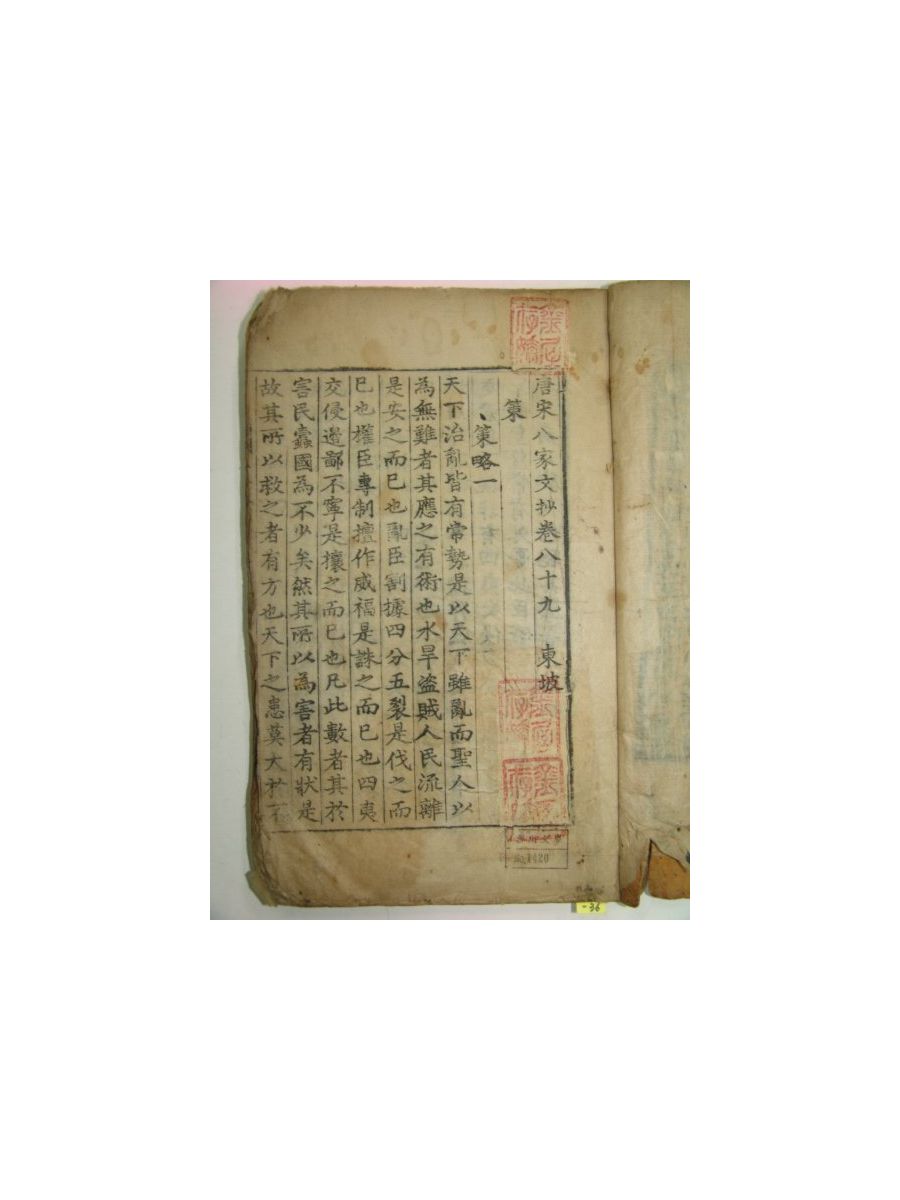 唐宋八家文抄卷八十九 東坡
策
策略一
天下治亂皆有常勢是以天下雖亂而聖人以
為無難者其應之有術也水旱盜賊人民流離
是安之而已也亂臣割據四分五裂是伐之而
已也權臣專制擅作威福是誅之而已也四夷
交侵邊鄙不寧是攘之而已也凡此數者其於
害民蠹國為不少矣然其所以為害者有狀是
故其所以救之者有方也天下之患莫大於不
No.1420
-36